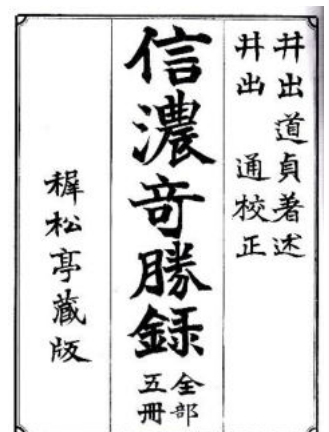 井出道貞著述
井出 通校正
信濃奇勝録
全部
五冊
稺松亭蔵版